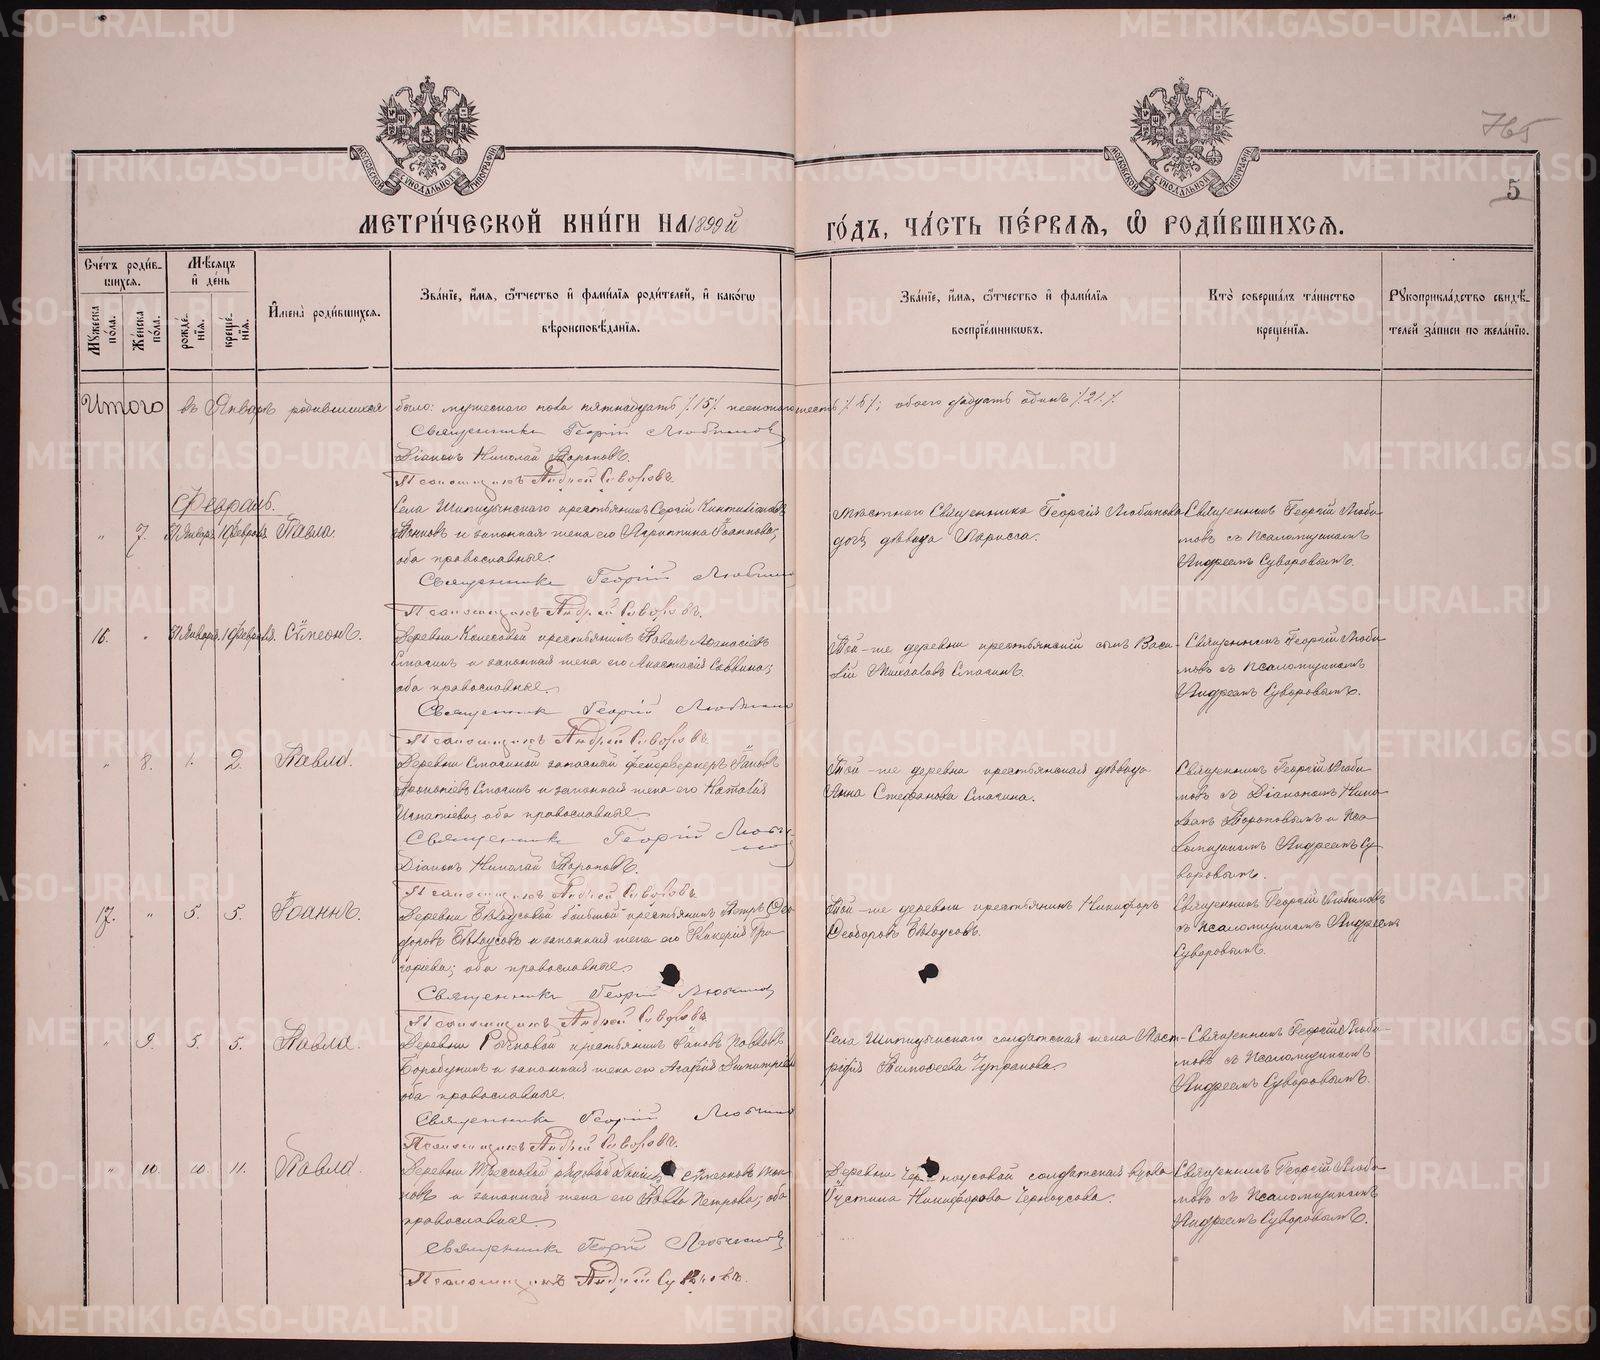 765
5
МЕТРИ́ЧЕСКОЙ КНИ́ГИ НА 1899й
ГО́ДЪ, ЧА́СТЬ ПЕ́РВАЯ, Ѡ҆ РОДИ́ВШИХСЯ.
Сче́тъ роди́в-
шихся.
Мꙋжеска
по́ла.
Же́нска
по́ла.
Мѣ́сяцъ
и҆ де́нь
рожде́-
нїя.
креще́-
нїя.
И҆мена̀ роди́вшихся.
Зва́нїе, и҆́мя, ѻ҆́тчество и҆ фами́лїя роди́телей, и҆ како́гѡ
вѣроисповѣ́данїя.
Зва́нїе, и҆́мя, ѻ҆́тчество и҆ фами́лїя
воспрїе́мникѡвъ.
Кто̀ соверша́лъ та́инство
креще́нїя.
Рꙋкоприкла́дство свидѣ́-
телей за́писи по жела́нїю.
Итого въ Январѣ родившихся было: мужескаго пола пятнадцать /.15/. женскаго шесть /.6/.; обоего двадцать одинъ /.21./.
Священникъ Георгій Любимовъ
Діаконъ Николай Тороповъ.
Псаломщикъ Андрей Суворовъ.
Февраль.
„ 7. 31 Января 1 Февраля Павла.
Села Шипицынскаго крестьянинъ Сергій
и законная жена его Агриппина Іоаннова;
оба православные.
Священникъ Георгій Любимовъ
Псаломщикъ Андрей Суворовъ.
Мѣстнаго Священника Георгія Любимова
дочь дѣвица Лариса.
Священникъ Георгій Люби-
мовъ съ Псаломщикомъ
Андреемъ Суворовымъ.
16. „ 31 Января 1 Февраля Сѵмеонъ.
Деревни крестьянинъ Павелъ Аѳанасіевъ
Спасинъ и законная жена его Анастасія Саввина;
оба православные.
Священникъ Георгій Любимовъ
Псаломщикъ Андрей Суворовъ.
Той-же деревни крестьянскій сынъ Васи-
лій Спасинъ.
Священникъ Георгій Люби-
мовъ съ Псаломщикомъ
Андреемъ Суворовымъ.
„ 8. 1. 2. Павла.
Деревни Спасиной запасный фейерверкеръ Іаковъ
Спасинъ и законная жена его Наталія
Игнатіева; оба православные.
Священникъ Георгій Люби-
мовъ
Діаконъ Николай Тороповъ.
Псаломщикъ Андрей Суворовъ.
Той-же деревни крестьянская дѣвица
Анна Стефанова Спасина.
Священникъ Георгій Люби-
мовъ съ Діакономъ Нико-
лаемъ Тороповымъ и Пса-
ломщикомъ Андреемъ Су-
воровымъ.
17. „ 5. 5. Іоаннъ.
Деревни Бѣлоусовой большой крестьянинъ Петръ Ѳео-
доровъ Бѣлоусовъ и законная жена его Гликерія Гри-
горіева; оба православные.
Священникъ Георгій Любимовъ
Псаломщикъ Андрей Суворовъ.
Той-же деревни крестьянинъ Никифоръ
Ѳеодоровъ Бѣлоусовъ.
Священникъ Георгій Любимовъ
съ Псаломщикомъ Андреемъ
Суворовымъ.
„ 9. 5. 5. Павла.
Деревни крестьянинъ Іаковъ Павловъ
и законная жена его Агафія Димитріева
оба православные.
Священникъ Георгій Любимовъ
Псаломщикъ Андрей Суворовъ.
Села Шипицынскаго солдатская жена Маст-
ридія Тимоѳеева Чупракова.
Священникъ Георгій Люби-
мовъ съ Псаломщикомъ
Андреемъ Суворовымъ.
„ 10. 10. 11. Павла.
Деревни рядовой Сѵмеоновъ
и законная жена его Павла Петрова; оба
православные.
Священникъ Георгій Любимовъ
Псаломщикъ Андрей Суворовъ.
Деревни Черноусовой солдатская вдова
Іустина Никифорова Черноусова.
Священникъ Георгій Люби-
мовъ съ Псаломщикомъ
Андреемъ Суворовымъ.
METRIKI.GASO-URAL.RU